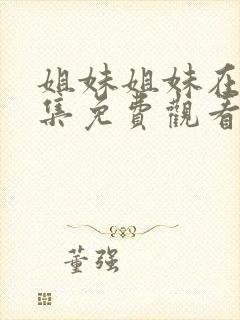 姐妹姐妹在
集免費觀看
董强